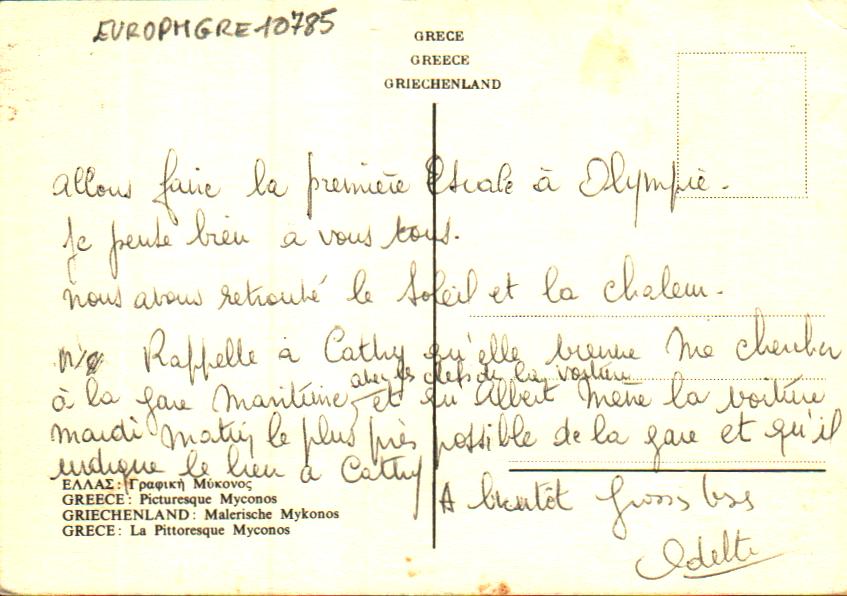 EUROPMGRE10785
GRECE
GREECE
GRIECHENLAND
allons faire la première Escale à Olympie.
Je pense bien à vous tous.
nous avons retrouvé le Soleil et la chaleur.
Rappelle à Cathy qu'elle vienne me chercher
avec les clefs de la voiture
à la gare Maritime et qu'Albert mène la voiture
mardi matin le plus près possible de la gare et qu'il
indique le lieu à Cathy
ΕΛΛΑΣ: Γραφική Μύκονος
GREECE: Picturesque Myconos
GRIECHENLAND: Malerische Mykonos
GRECE: La Pittoresque Myconos
A bientôt Gross bses
Odette